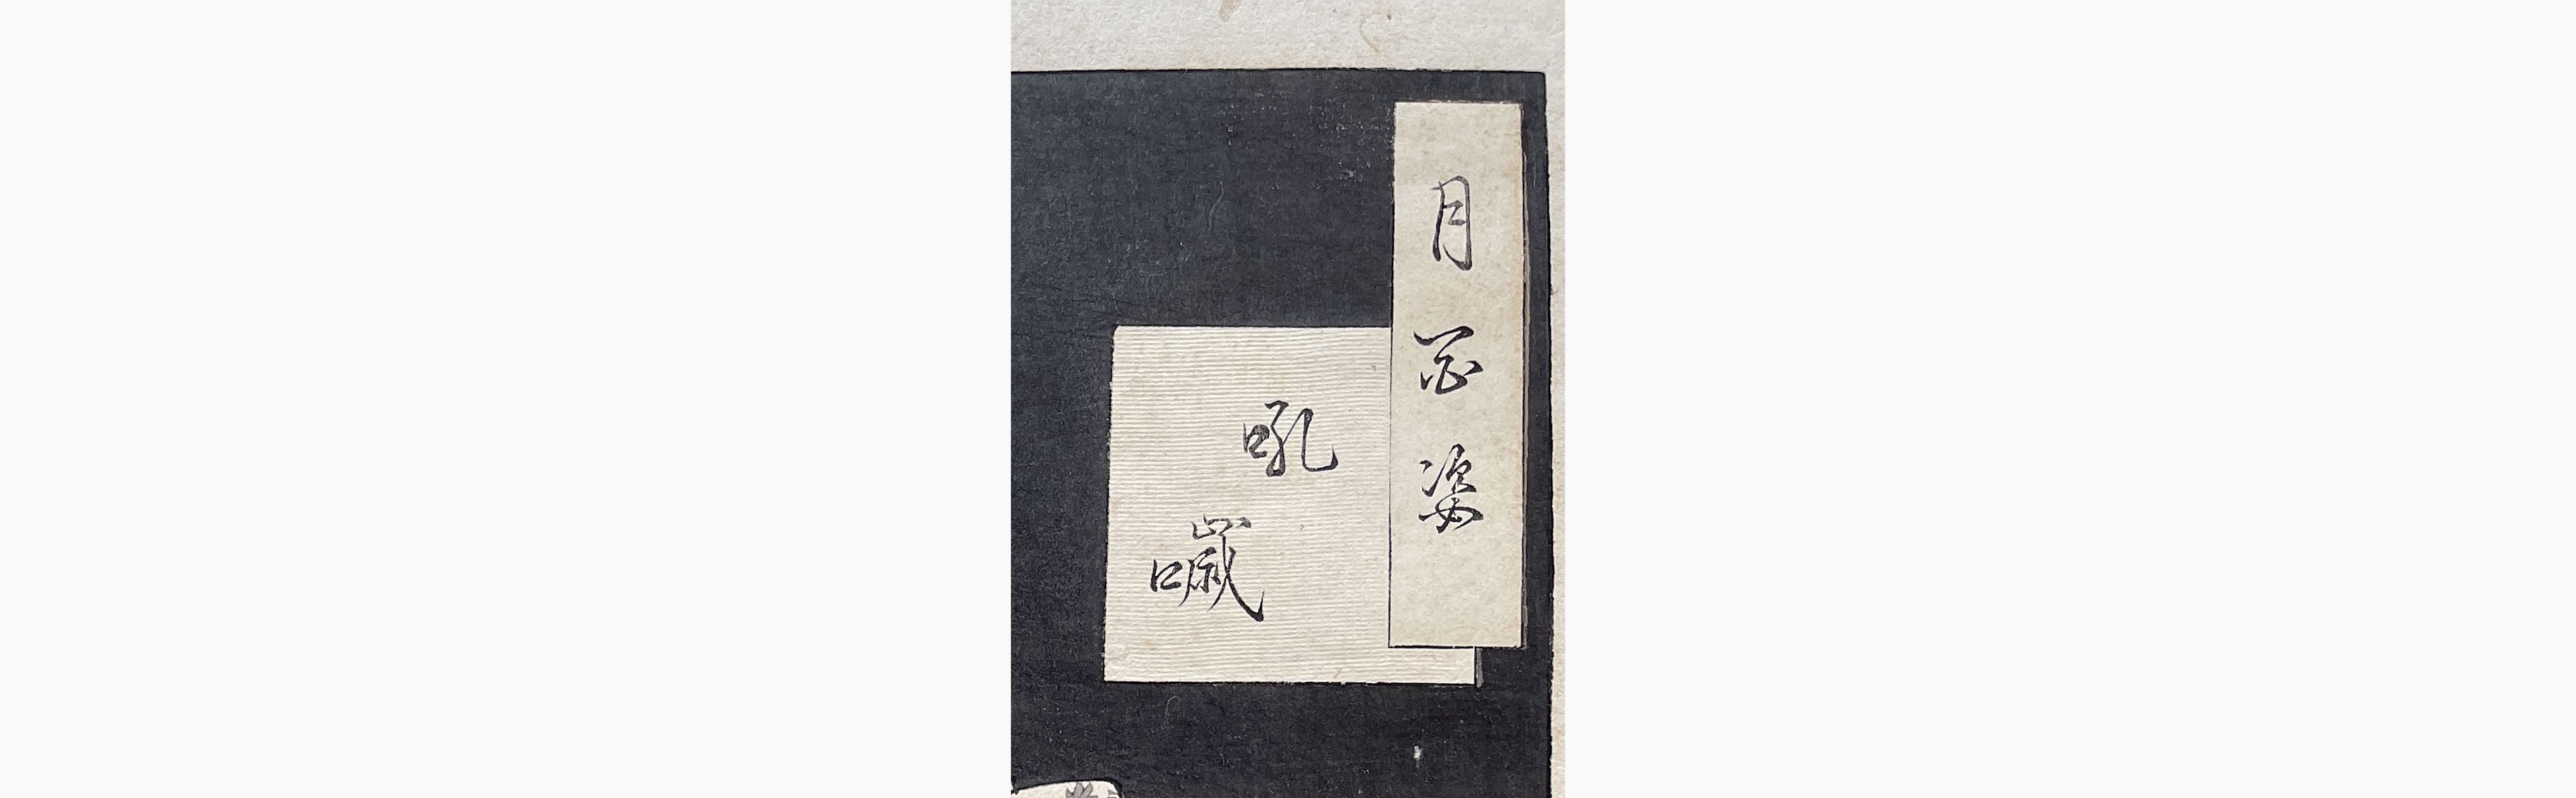 月百姿
吼噦